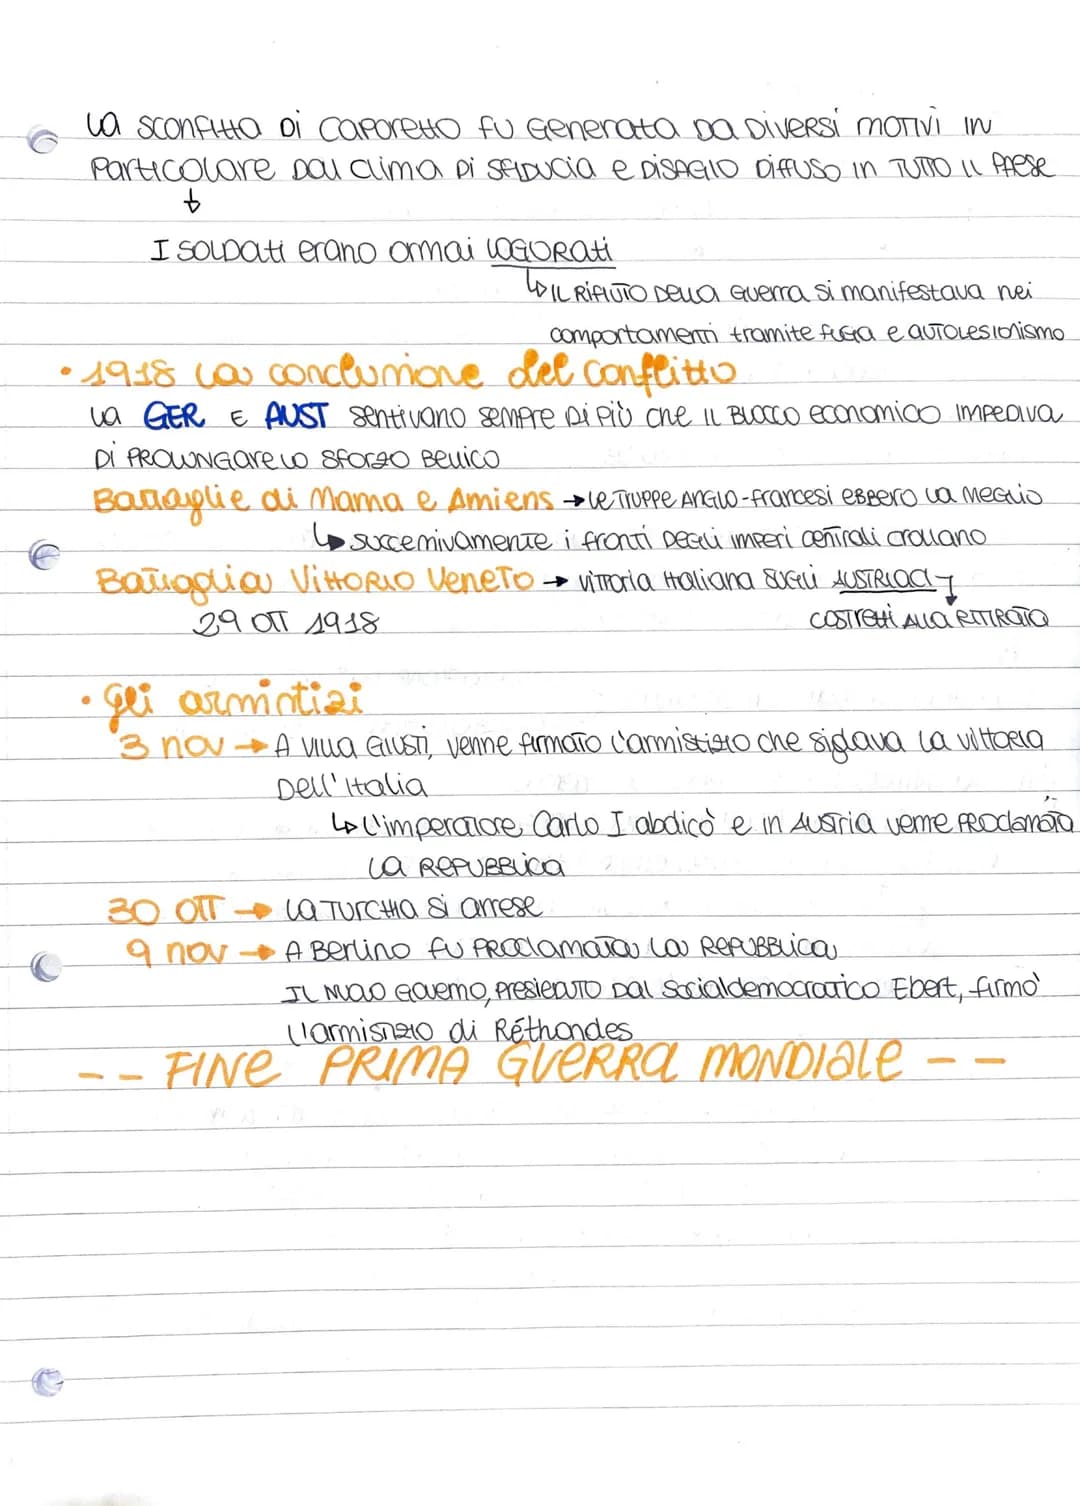 La sconfitta di Caporetto fu generata da diversi motivi in
particolare dal clima di sfiducia e disagio diffuso in tutto il paese
I soldati erano ormai logorati
Il rifiuto della guerra si manifestava nei
comportamenti tramite fuga e autolesionismo
• 1918 la conclusione del conflitto
La GER e AUST sentivano sempre di più che il blocco economico impediva
di prolungare lo sforzo bellico
Battaglie di Marna e Amiens → le truppe anglo-francesi ebbero la meglio
↳ successivamente i fronti degli imperi centrali crollano
Battaglia Vittorio Veneto → vittoria italiana sugli austriaci
29 OTT 1918 costretti alla ritirata
• Gli armistizi
3 nov → A Villa Giusti, venne firmato l'armistizio che siglava la vittoria
dell'Italia
↳ L'imperatore Carlo I abdicò e in Austria venne proclamata
la repubblica
30 OTT → La Turchia si arrese
9 nov → A Berlino fu proclamata la repubblica
Il nuovo governo, presieduto dal socialdemocratico Ebert, firmò
l'armistizio di Réthondes
-- FINE PRIMA GUERRA MONDIALE --